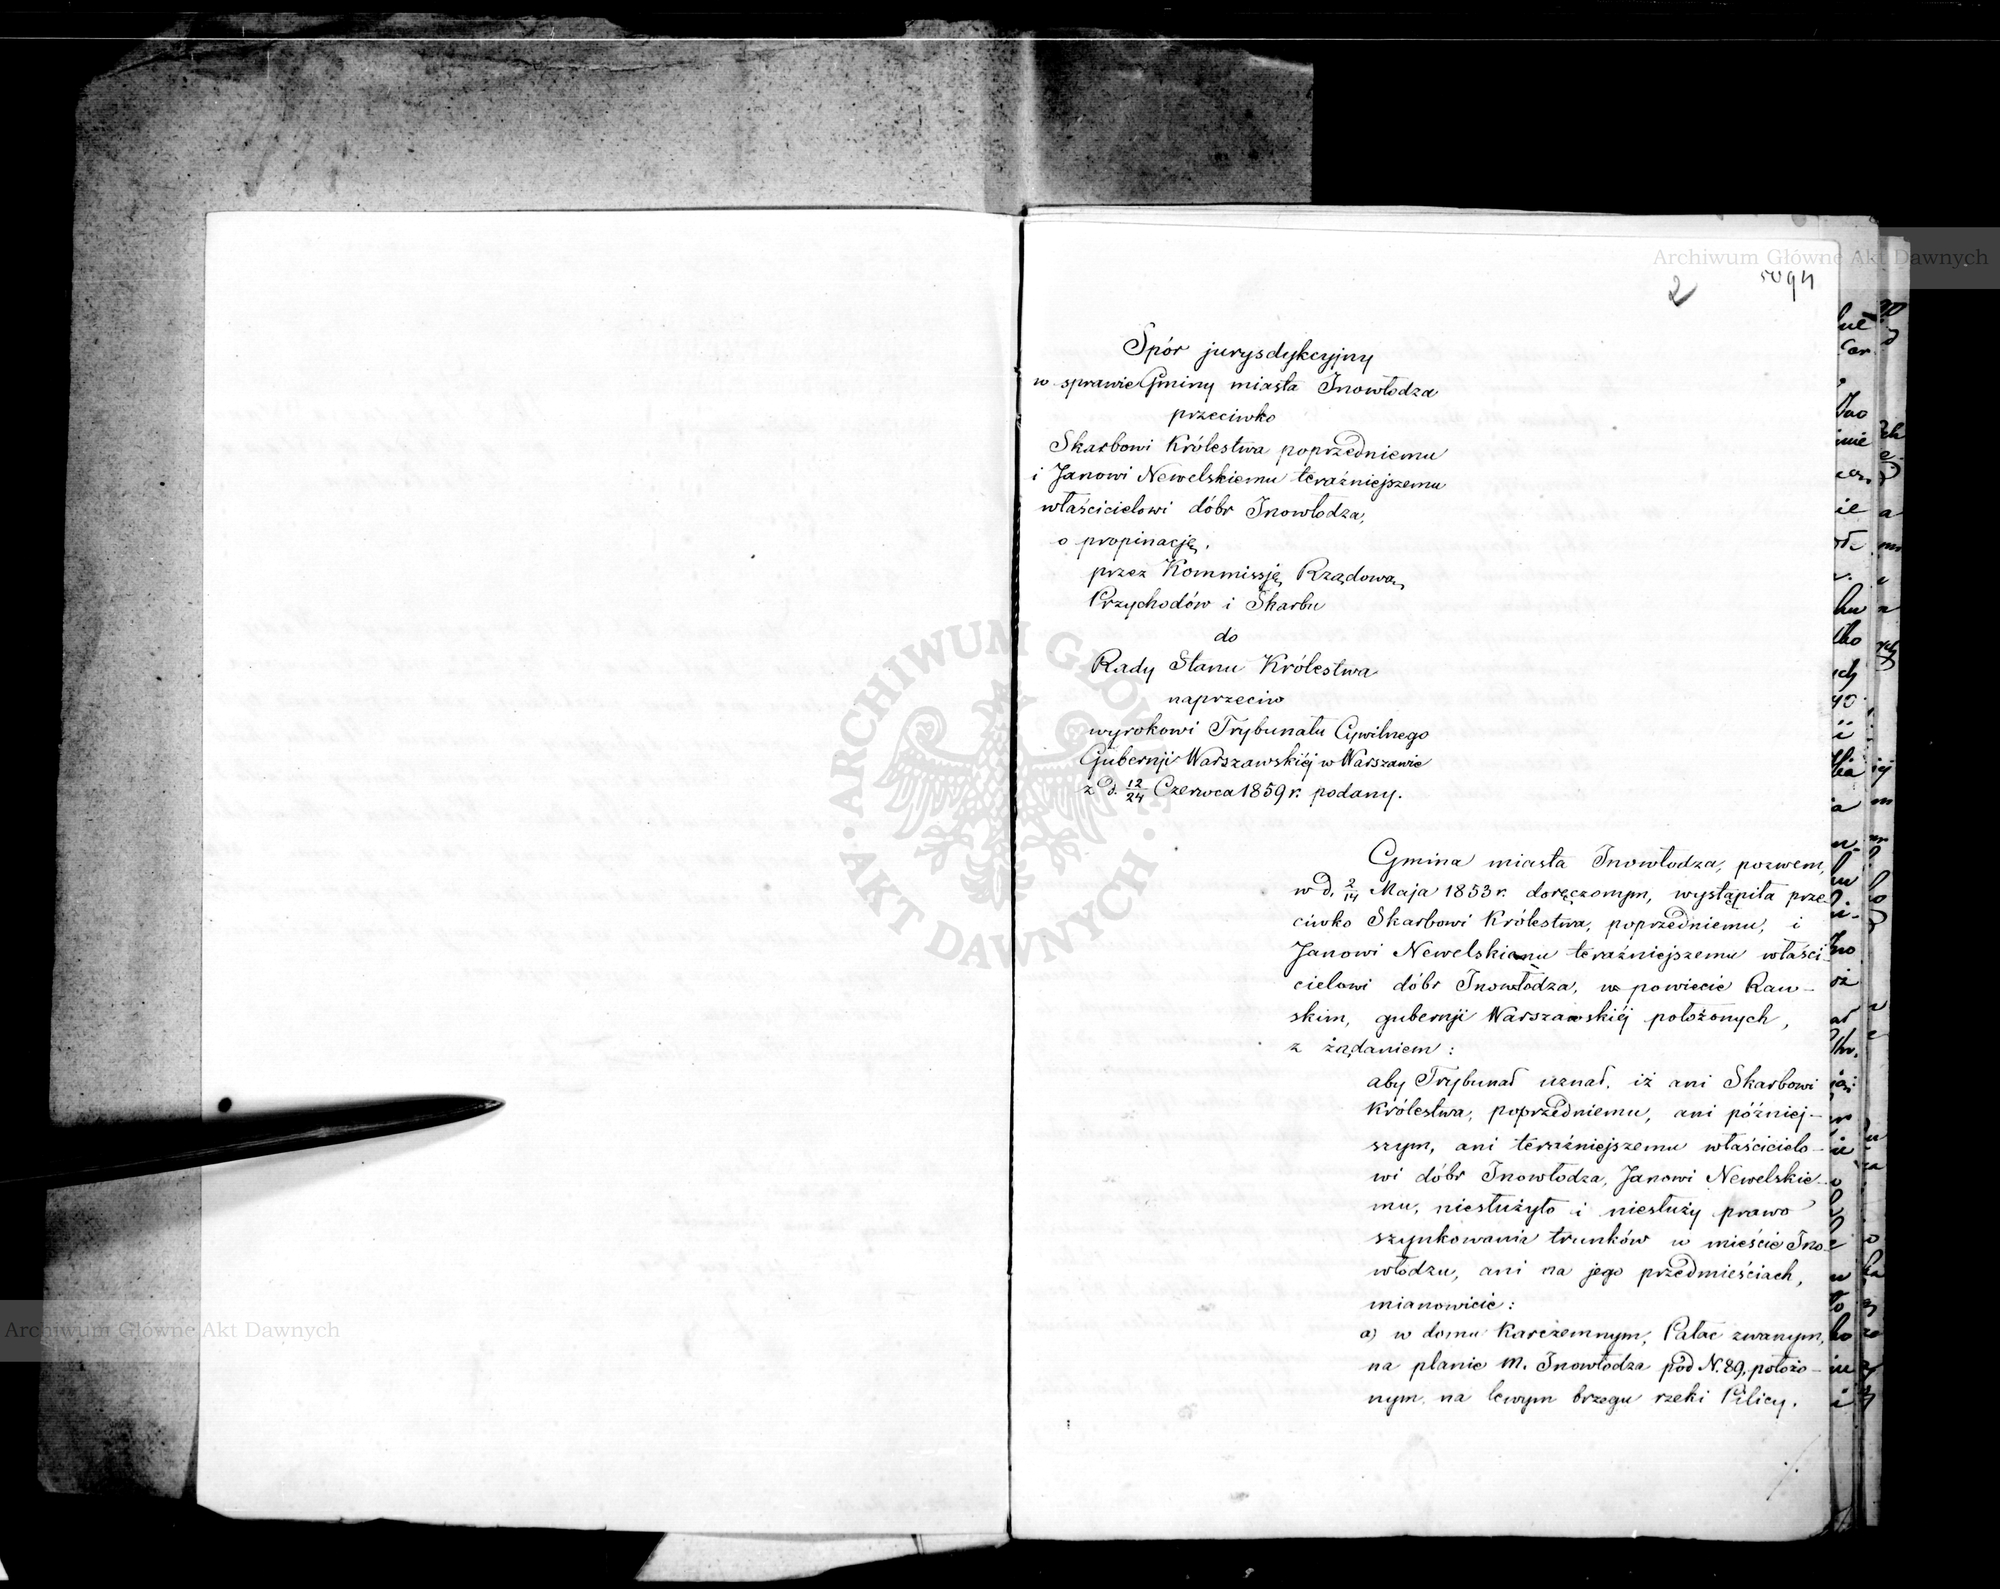 Archiwum Główne Akt Dawnych
2
Spór jurysdykcyjny
w sprawie Gminy miasta Inowłodza
przeciwko
Skarbowi Królestwa poprzedniemu
i Janowi Newelskiemu teraźniejszemu
właścicielowi dóbr Inowłodza,
o propinacją,
przez Kommissją Rządową
Przychodów i Skarbu
do
Rady Stanu Królestwa
naprzeciw
wyrokowi Trybunału Cywilnego
Gubernji Warszawskiéj w Warszawie
z d. 12/24 Czerwca 1859 r. podany.
Gmina miasta Inowłodza, pozwem,
w d. 2/14 Maja 1853 r. doręczonym, wystąpiła prze-
ciwko Skarbowi Królestwa, poprzedniemu, i
Janowi Newelskiemu teraźniejszemu właści-
cielowi dóbr Inowłodza, w powiecie Raw-
skim, gubernji Warszawskiéj położonych,
z żądaniem:
aby Trybunał uznał, iż ani Skarbowi
Królestwa, poprzedniemu, ani później-
szym, ani teraźniejszemu właścicielo-
wi dóbr Inowłodza, Janowi Newelskie-
mu, niesłużyło i niesłuży prawo
szynkowania trunków w mieście Ino-
włodzu, ani na jego przedmieściach,
mianowicie:
a) w domu karczemnym, Pałac zwanym,
na planie m. Inowłodza pod N. 89, położo-
nym, na lewym brzegu rzeki Pilicy.
./.
ARCHIWUM GŁÓWNE AKT DAWNYCH
Archiwum Główne Akt Dawnych